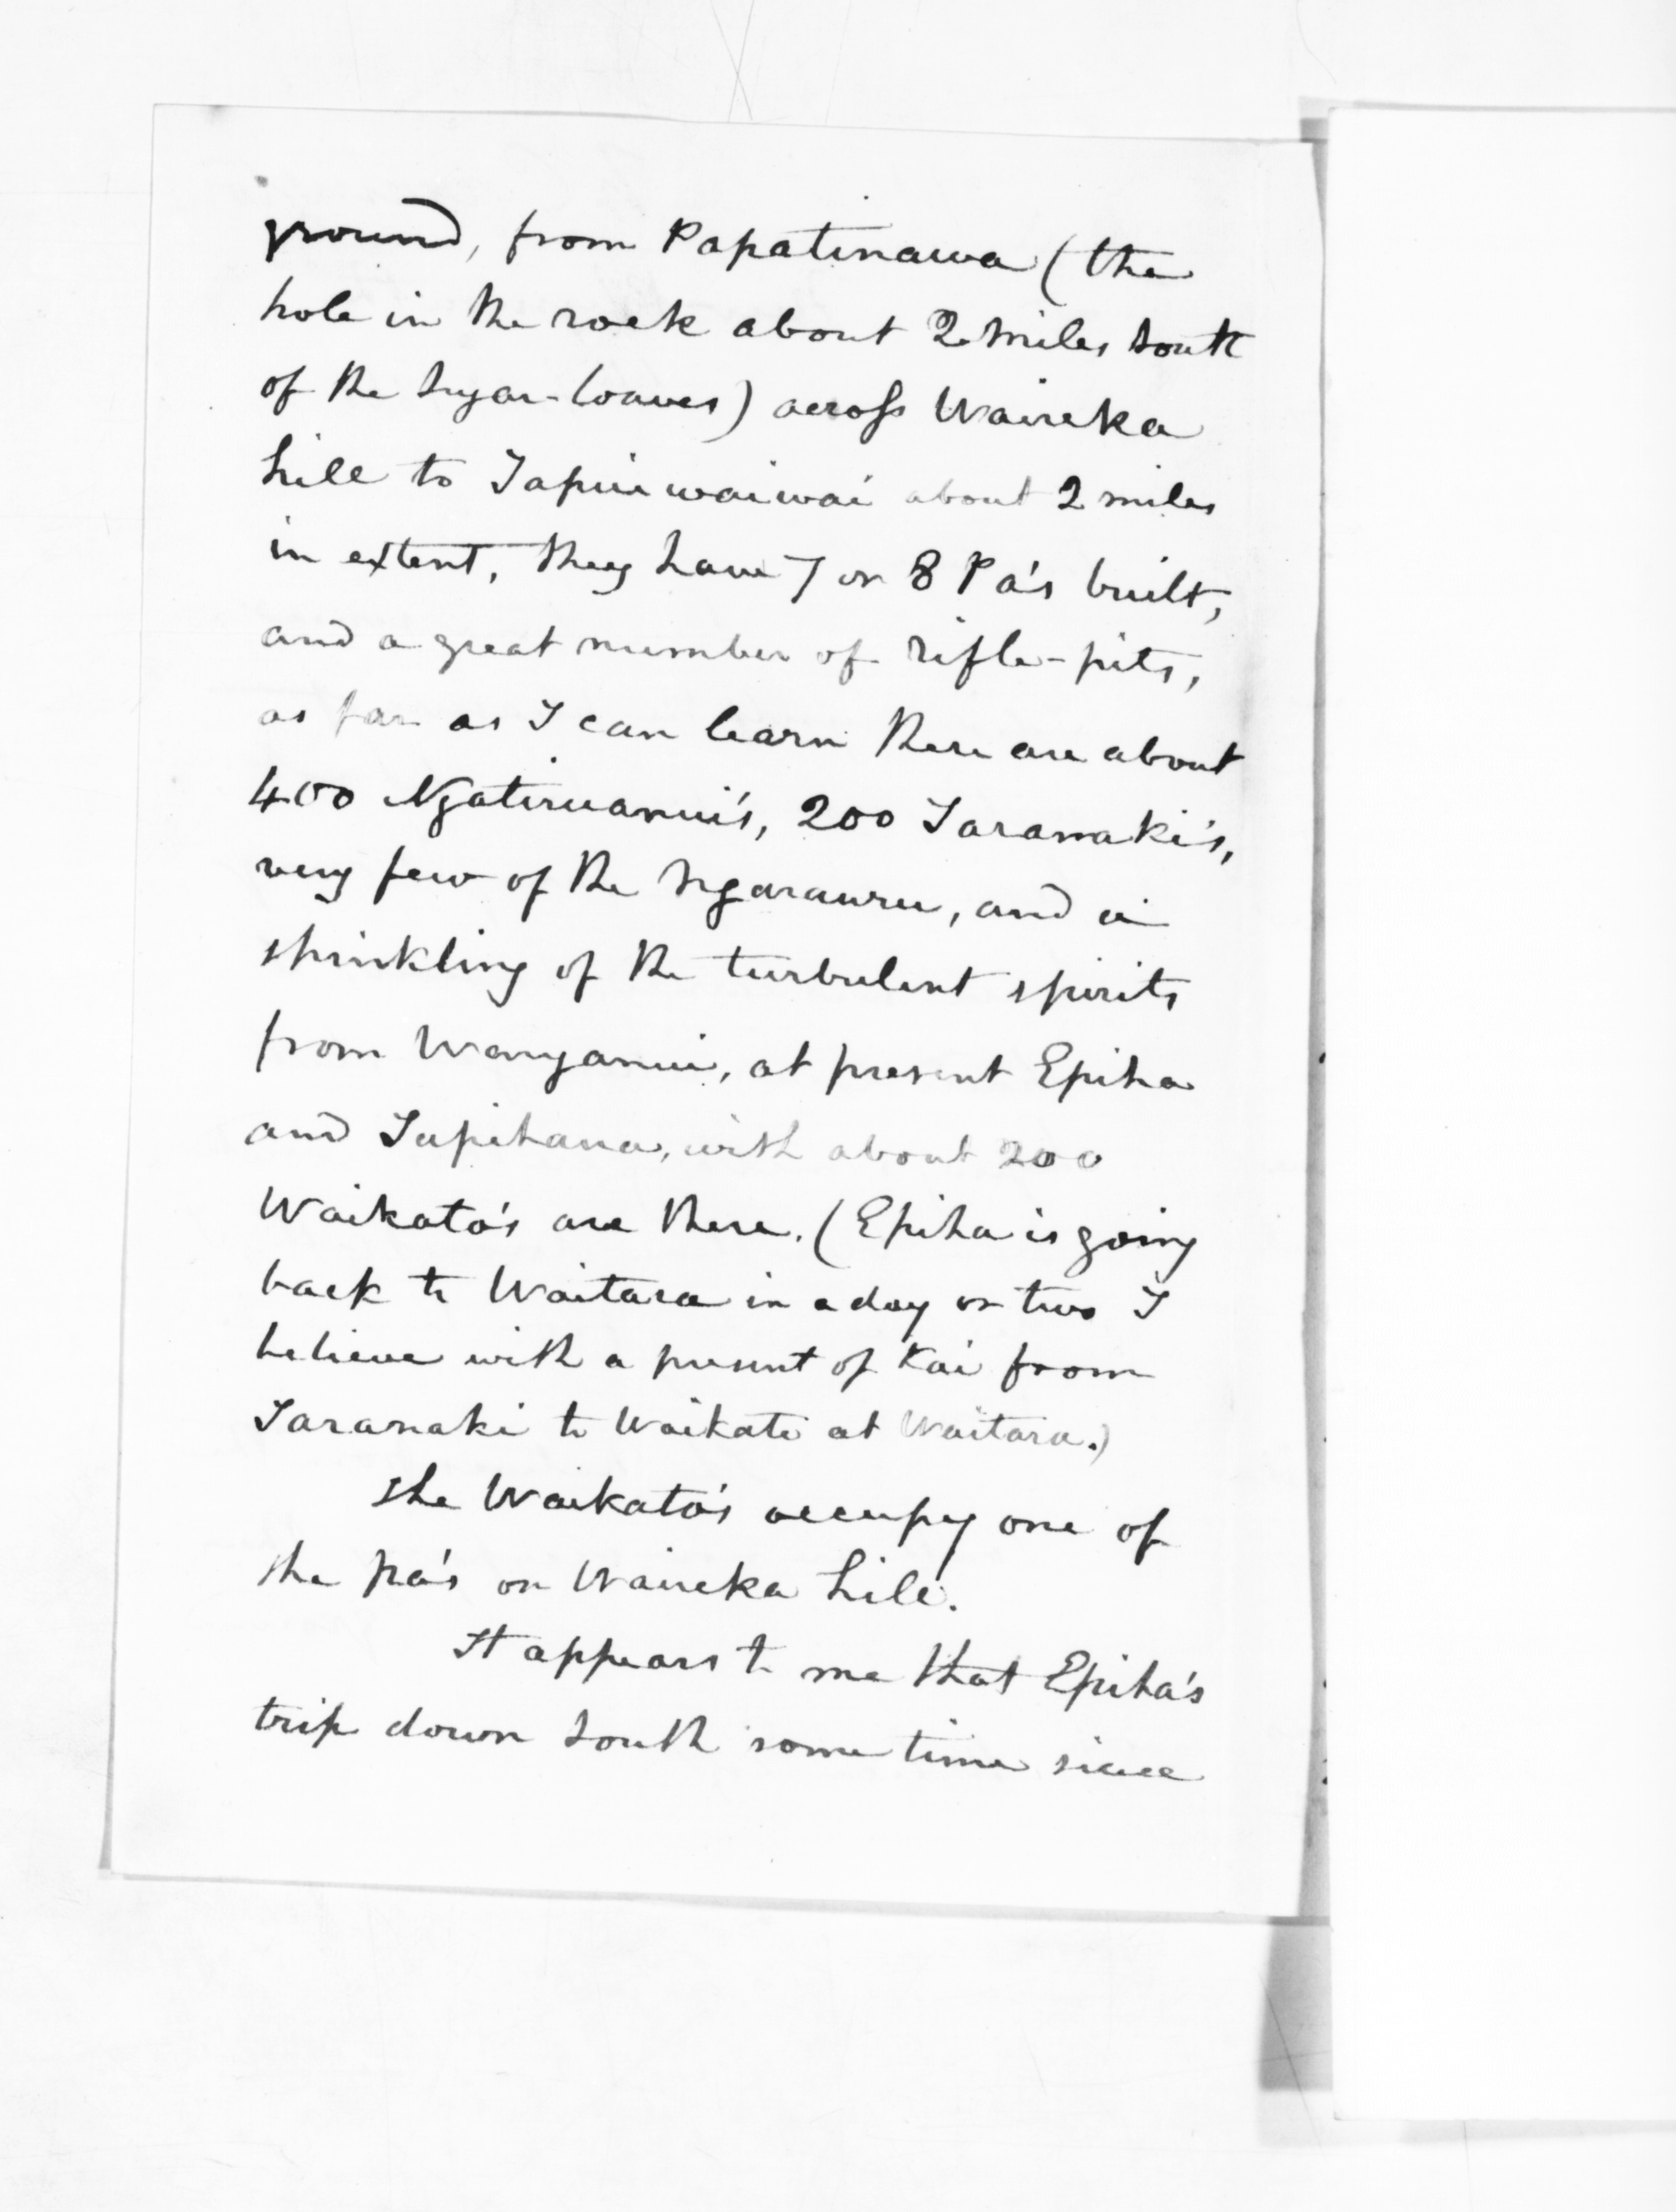 ground, from Papatinawa (the
hole in the rock about 2 miles south
of the Sugar-loaves) across Waireka
hill to Tapuiwaiwai about 2 miles
in extent, they have 7 or 8 Pa's built,
and a great number of rifle-pits,
as far as I can learn there are about
400 Ngatiruanui's, 200 Taranaki's,
very few of the Ngarauru, and a
sprinkling of the turbulent spirits
from Wanganui, at present Epiha
and Tapihana, with about 200
Waikato's are there. (Epiha is going
back to Waitara in a day or two I
believe with a present of Kai from
Taranaki to Waikato at Waitara.)
The Waikato's occupy one of
the pa's on Waireka hill.
It appears to me that Epiha's
trip down South some time since